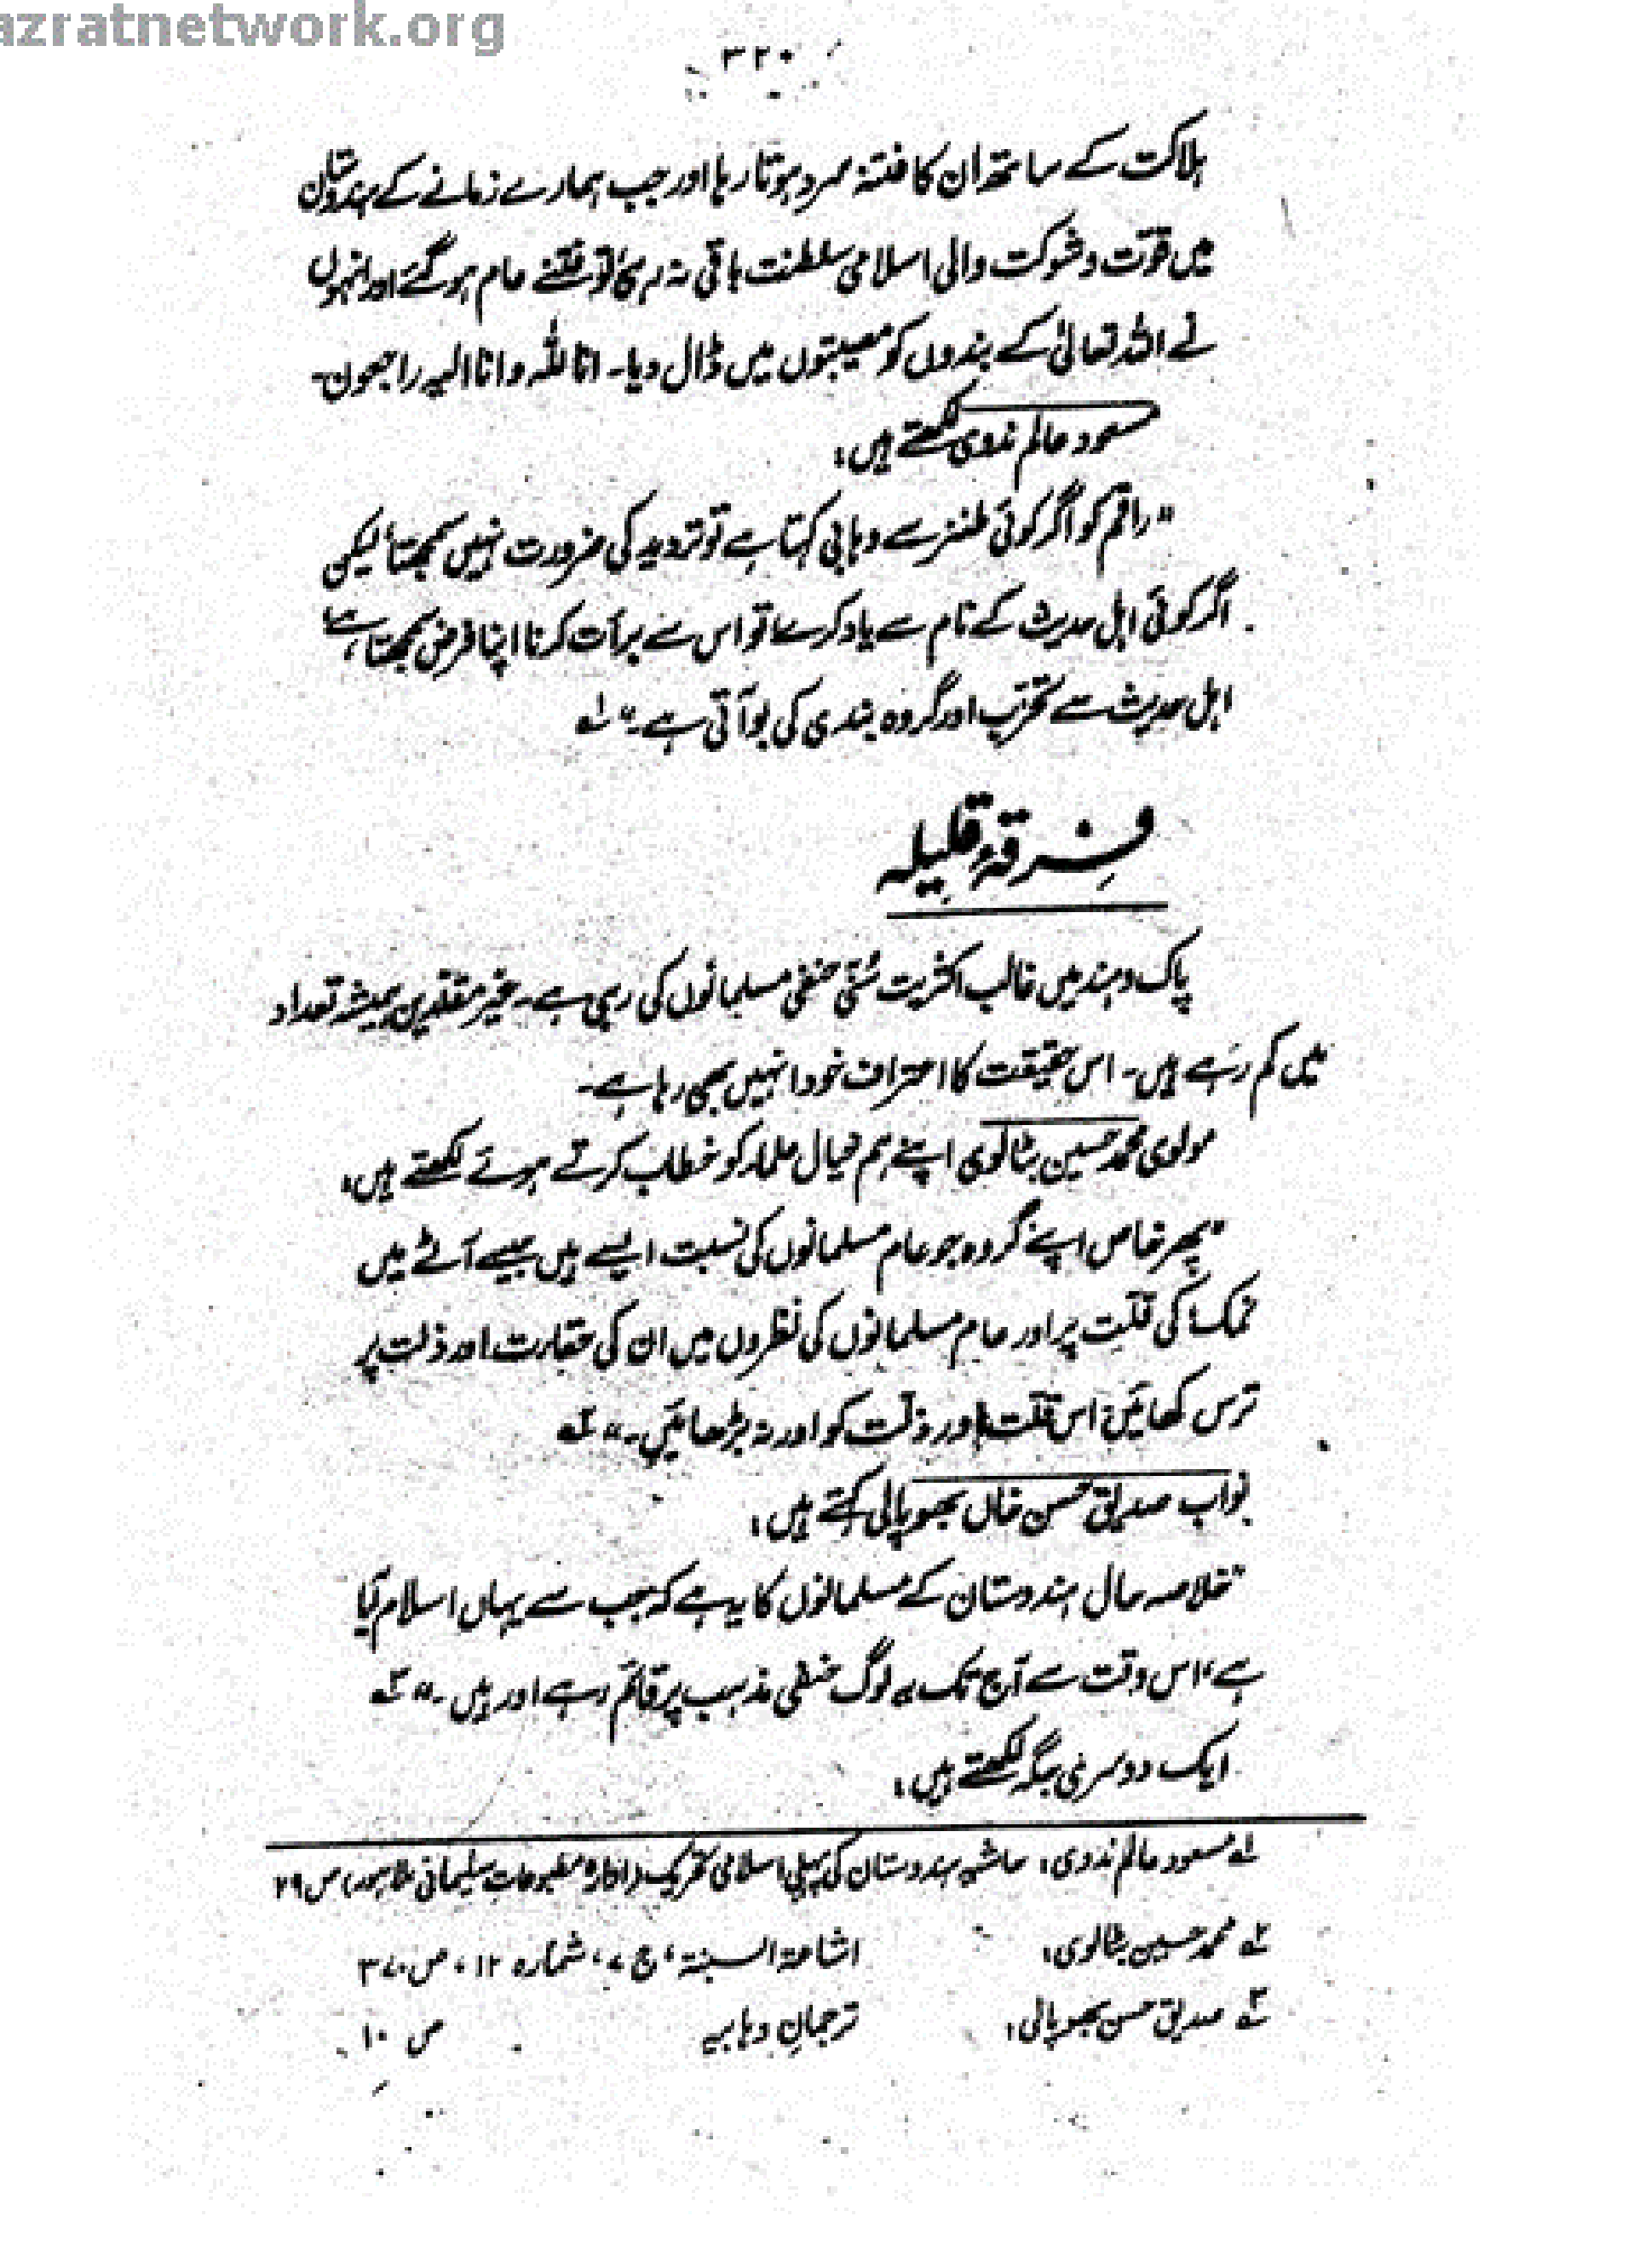 azratnetwork.org
۳۲۰
ہلاکت کے ساتھ ان کا فتنہ سرد ہوتا رہا اور جب ہمارے زمانے کے ہندوستان
میں قوت و شوکت والی اسلامی سلطنت باقی نہ رہی تو فتنے عام ہو گئے اور انہوں
نے اللہ تعالیٰ کے بندوں کو مصیبتوں میں ڈال دیا۔ انا للہ وانا الیہ راجعون۔
مسعود عالم ندوی لکھتے ہیں:
"راقم کو اگر کوئی طنز سے وہابی کہتا ہے تو تردید کی ضرورت نہیں سمجھتا، لیکن
اگر کوئی اہل حدیث کے نام سے یاد کرے تو اس سے برأت کرنا اپنا فرض سمجھتا ہے،
اہل حدیث سے تحزب اور گروہ بندی کی بو آتی ہے۔" ۱ے
فرقۂ قلیلہ
پاک و ہند میں غالب اکثریت سُنّی حنفی مسلمانوں کی رہی ہے۔ غیر مقلدین ہمیشہ تعداد
میں کم رہے ہیں۔ اس حقیقت کا اعتراف خود انہیں بھی رہا ہے۔
مولوی محمد حسین بٹالوی اپنے ہم خیال علماء کو خطاب کرتے ہوئے لکھتے ہیں:
"پھر خاص اپنے گروہ جو عام مسلمانوں کی نسبت ایسے ہیں جیسے آٹے میں
نمک، کی قلّت پر اور عام مسلمانوں کی نظروں میں ان کی حقارت اور ذلت پر
ترس کھائیں، اس قلّت اور ذلّت کو اور نہ بڑھائیں۔" ۲ے
نواب صدیق حسن خاں بھوپالی کہتے ہیں:
"خلاصہ حال ہندوستان کے مسلمانوں کا یہ ہے کہ جب سے یہاں اسلام آیا
ہے، اس وقت سے آج تک یہ لوگ حنفی مذہب پر قائم رہے اور ہیں۔" ۳ے
ایک دوسری جگہ لکھتے ہیں:
۱ے مسعود عالم ندوی: حاشیہ ہندوستان کی پہلی اسلامی تحریک (ادارہ مطبوعات سلیمانی، لاہور) ص ۲۹
۲ے محمد حسین بٹالوی: اشاعۃ السنۃ، ج ۷، شمارہ ۱۲، ص ۳۷۰
۳ے صدیق حسن بھوپالی: ترجمانِ وہابیہ ص ۱۰